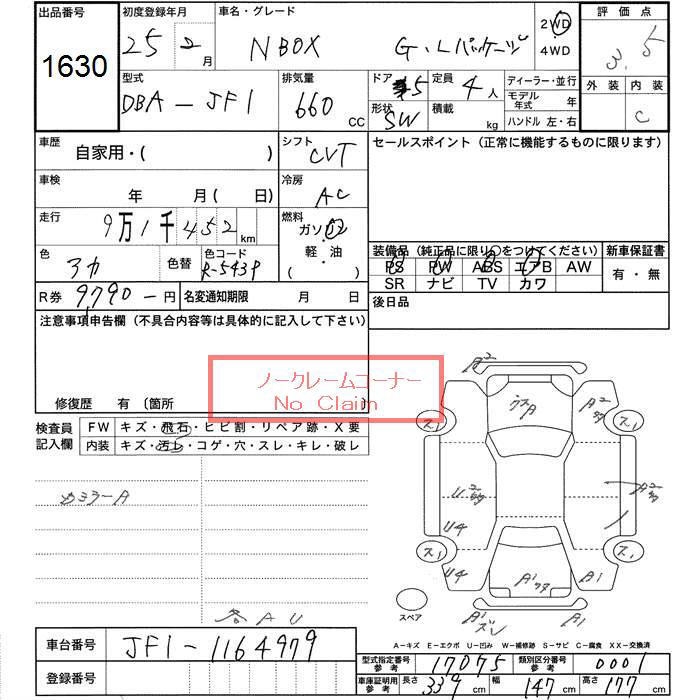 出品番号 初度登録年月 車名・グレード 2WD 評価点
1630 25 2月 N BOX G・Lパッケージ 4WD 3.5
型式 排気量 ドア 5 定員 4人 ディーラー・並行 外装 内装
DBA-JF1 660 CC 形状 SW 積載 kg モデル年式 年 C
ハンドル 左・右
車歴 自家用・( ) シフト CVT セールスポイント(正常に機能するものに限ります)
車検 年 月( 日) 冷房 AC
走行 9万1千452km 燃料 ガソリン
軽・油
( )
色 アカ 色替 色コード R-543P 装備品(純正品に限り○をつけてください) 新車保証書
PS PW ABS エアB AW 有・無
SR ナビ TV カワ
R券 9,790-円 名変通知期限 月 日 後日品
注意事項申告欄(不具合内容等は具体的に記入して下さい)
ノークレームコーナー
No Claim
修復歴 有〔箇所
検査員記入欄 FW キズ・飛石・ヒビ割・リペア跡・X要
内装 キズ・汚レ・コゲ・穴・スレ・キレ・破レ
A2
ウスA A2
ス1 ス1
U2 A2
U4
ス1 ス1
U4 A1
スペア
A1 A1
ズレ
カミラーA
各AU
A-キズ E-エクボ U-凹み W-補修跡 S-サビ C-腐食 XX-交換済
車台番号 JF1-1164979
型式指定番号参考 17075 類別区分番号参考 0001
登録番号
車庫証明用参考 長さ 339cm 幅 147cm 高さ 177cm